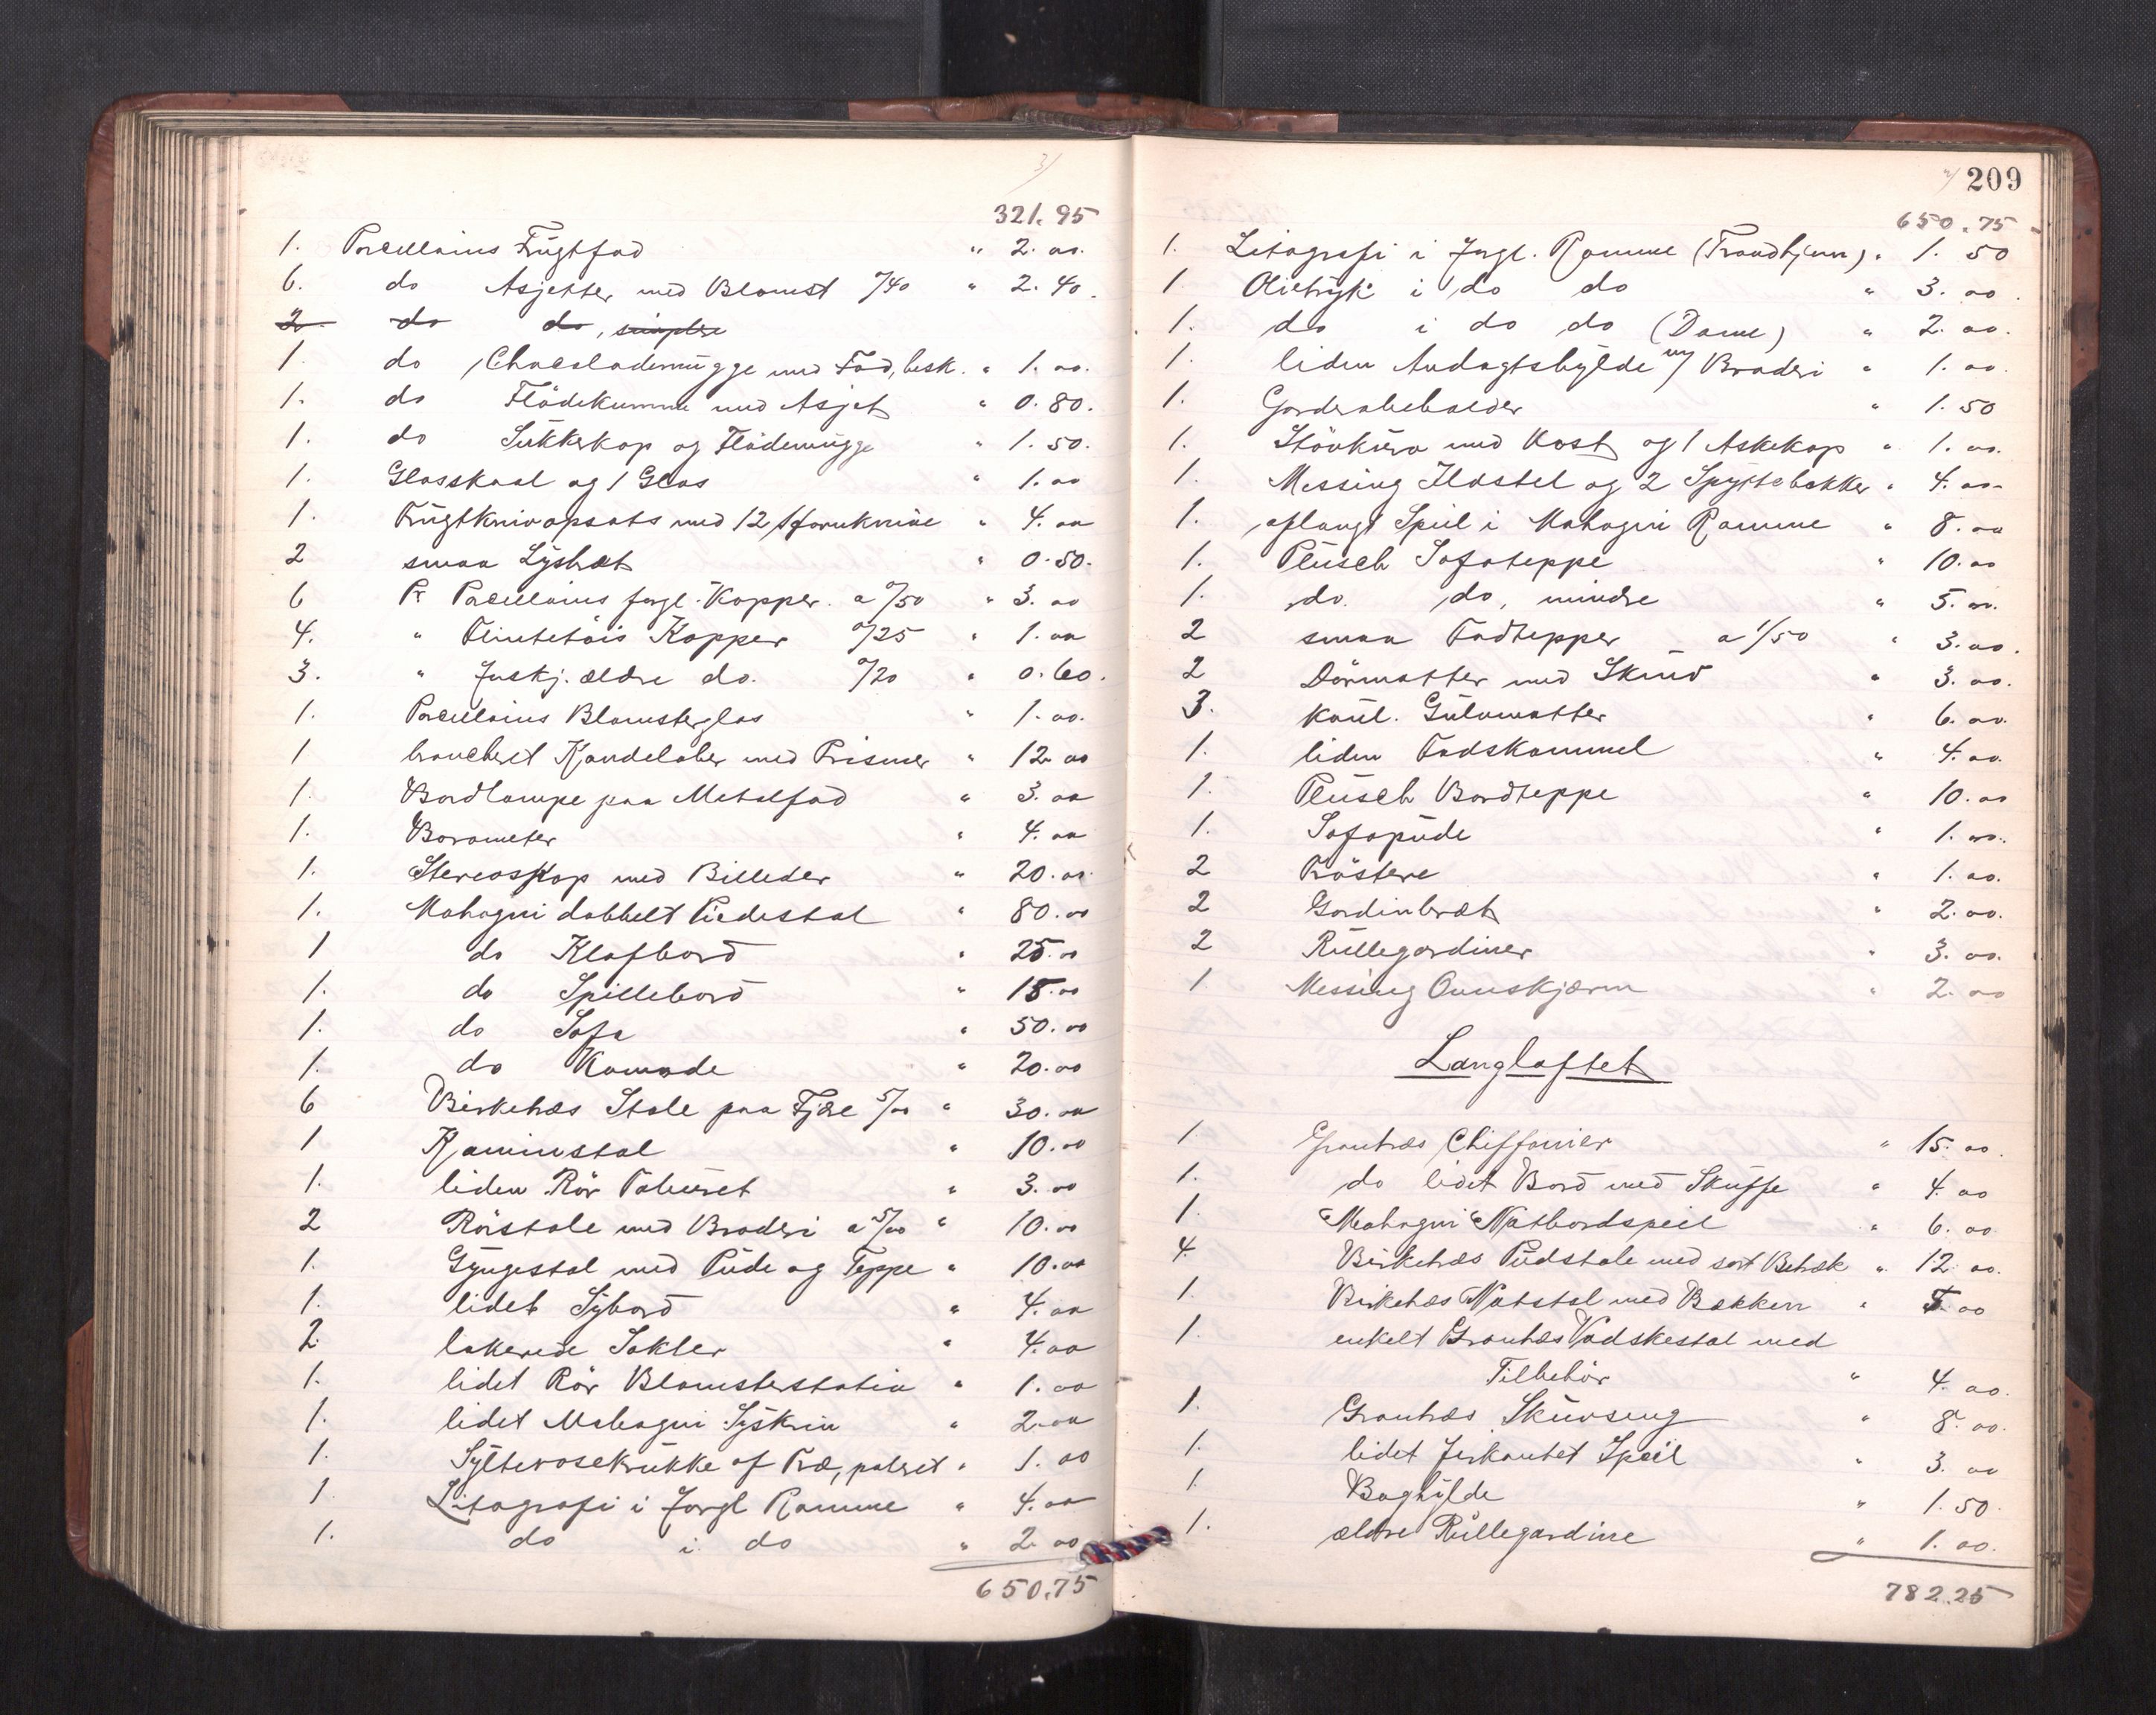 321.95
1. Porcellains Frugtfad " 2.00.
6. do Asjetter med Blomst 0/40 " 2.40.
2 do do, simplere
1. do Chocolademugge med Fad, besk. " 1.00.
1. do Flödekumme med Asjet " 0.80.
1. do Sukkerkop og Flödemugge " 1.50.
1. Glasskaal og 1 Glas " 1.00
1. Frugtknivopsats med 12 knive " 4.00
2 smaa Lysbræt " 0.50.
6 Pr Porcellains forgl. Kopper a 0/50 " 3.00
4. " Flintetöis Kopper 0/25 " 1.00
3. " forskj. ældre do. 0/20 " 0.60.
1. Porcellains Blomsterglas " 1.00.
1 broncheret Kandelaber med Prismer " 12.00
1. Bordlampe paa Metalfod " 3.00
1. Barometer " 4.00
1. Stereoskop med Billeder " 20.00.
1. Mahogni dobbelt Piedestal " 80.00
1 do Klafbord " 25.00
1. do Spillebord " 15.00
1. do Sofa " 50.00
1. do Komode " 20.00
6 Birketræs Stole paa Fjære 5/00 " 30.00
1 Kaminstol " 10.00
1. liden Rör Taburet " 3.00
2 Rörstole med Broderi a 5/00 " 10.00
1. Gyngestol med Pude og Teppe " 10.00
1. lidet Sybord " 4.00
2 lakerede Sokler " 4.00
1. lidet Rör Blomsterstativ " 1.00
1. lidet Mahogni Syskrin " 2.00
1. Sylterosekrukke af Træ, poleret " 1.00
1. Litografi i forgl Ramme " 4.00
1. do i do " 2.00
650.75
209
650.75
1. Litografi i forgl. Ramme (Trondhjem) " 1.50
1 Olietryk i do do " 3.00.
1. do i do do (Dame) " 2.00.
1. liden Andagtshylde m/ Broderi " 1.00.
1. Garderobeholder " 1.50
1. Stövkurv med Kost og 1 Askekop " 1.00.
1. Messing Ildstel og 2 Spyttebakker " 4.00
1. aflangt Speil i Mahogni Ramme " 8.00
1. Plüsch Sofateppe " 10.00
1. do. do, mindre " 5.00.
2 smaa Fodtepper a 1/50 " 3.00.
2 Dörmatter med Skind " 3.00.
3. koul. Gulvmatter " 6.00.
1. liden Fodskammel " 4.00.
1. Plüsch Bordteppe " 10.00
1. Sofapude " 1.00.
2 Tröstere " 1.00.
2 Gardinbræt " 2.00.
2 Rullegardiner " 3.00.
1 Messing Ovnskjærm " 2.00
Langloftet
1. Grantræs Chiffonier " 15.00.
1. do lidet Bord med Skuffe " 4.00
1. Mahogni Natbordspeil " 6.00
4. Birketræs Pudstole med sort Betræk " 12.00.
1. Birketræs Natstol med Bekken " 5.00
1. enkelt Grantræs Vadskestol med
Tilbehör " 4.00.
1. Grantræs Skuvseng " 8.00.
1. lidet firkantet Speil " 3.00
1. Boghylde " 1.50
1. ældre Rullegardine " 1.00.
782.25